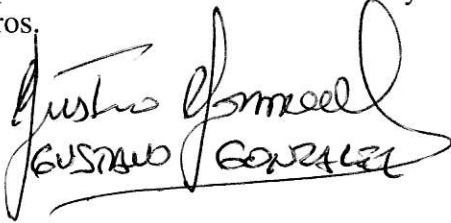 ros.
Gustavo Gonzalez
GUSTAVO GONZALEZ